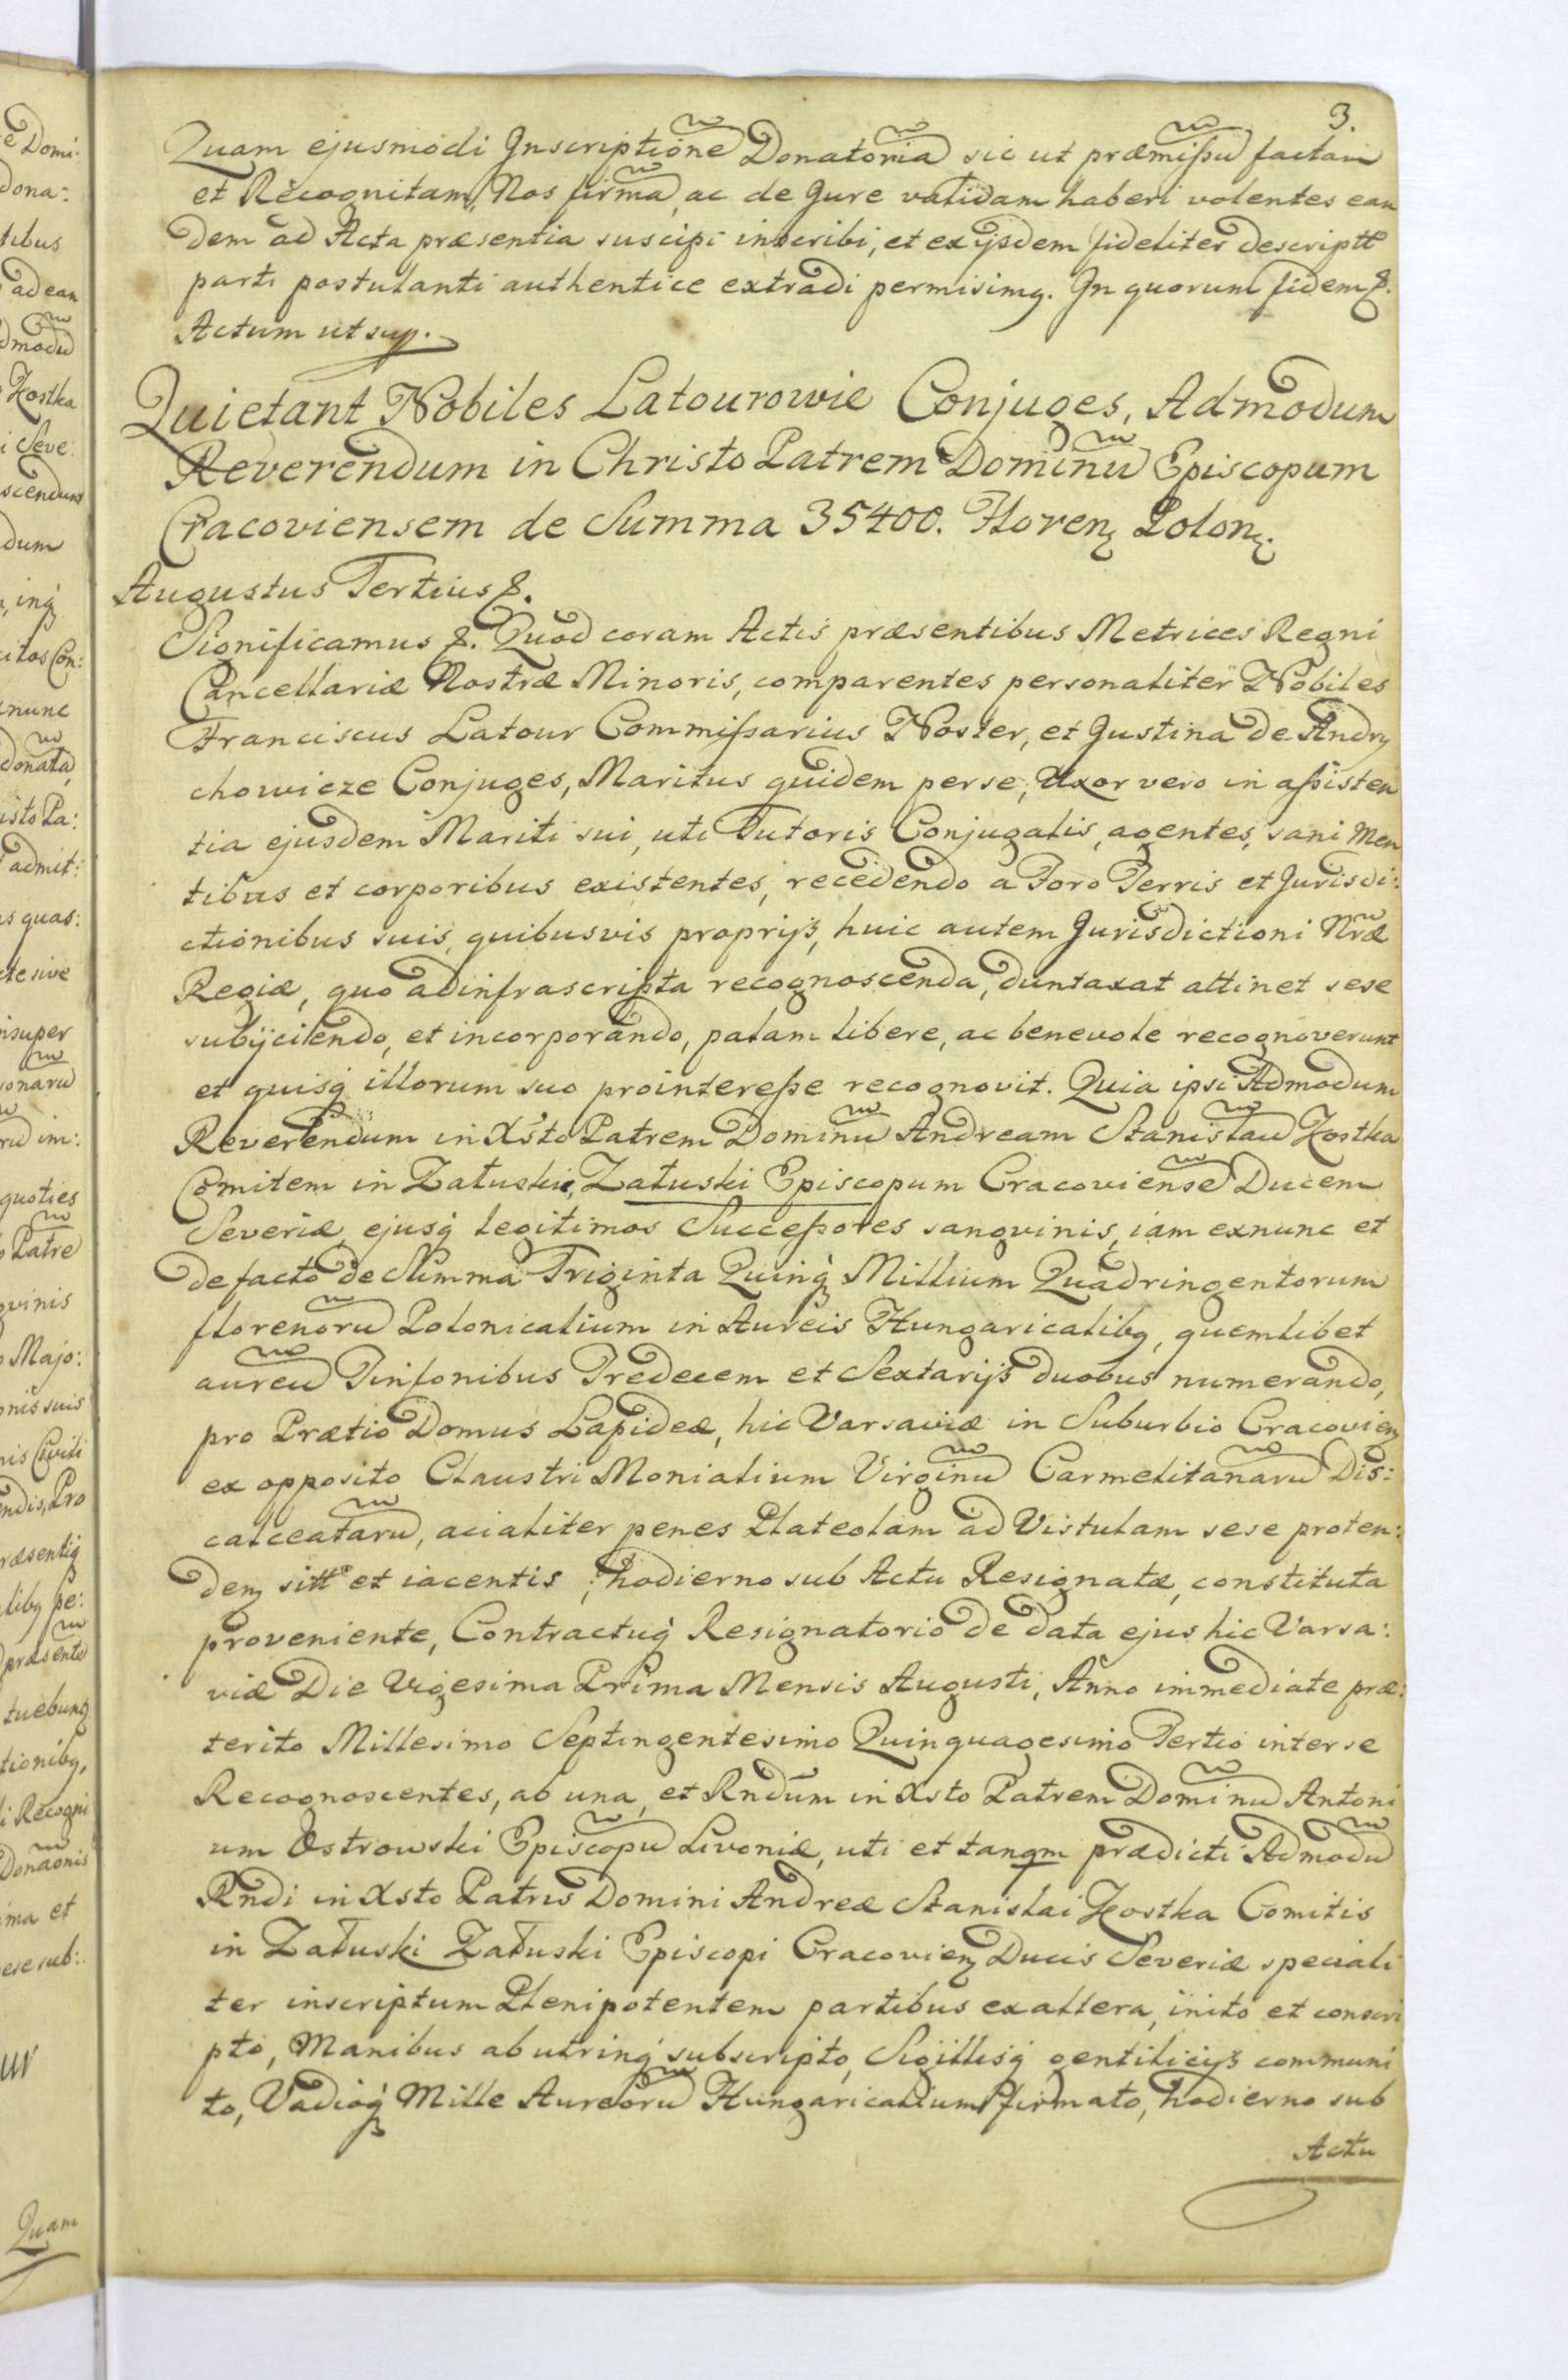 3.
Quam ejusmodi Inscriptionẽ Donatoriã sic ut præmißũ factam
et Recognitam, Nos firmã, ac de Jure validam haberi volentes ean
dem ad Acta præsentia suscipi inscribi, et ex ijsdem fideliter descriptt
parti postulanti authentice extradi permisimq. In quorum fidem &.
Actum ut sup.
Quietant Nobiles Latourowie Conjuges, Admodum
Reverendum in Christo Patrem Dominũ Episcopum
Cracoviensem de Summa 35400. Floren Polon.
Augustus Tertius &.
Significamus &. Quod coram Actis præsentibus Metrices Regni
Cancellariæ Nostræ Minoris, comparentes personaliter Nobiles
Franciscus Latour Commißarius Noster, et Justina de Andry
chowicze Conjuges, Maritus quidem per se, Uxor vero in aßisten
tia ejusdem Mariti sui, uti Tutoris Conjugalis, agentes, sani Men
tibus et corporibus existentes, recedendo a Foro Terris et Jurisdi:
ctionibus suis, quibusvis proprijs, huic autem Jurisdictioni Nr̃æ
Regiæ, quo ad infrascripta recognoscenda, duntaxat attinet sese
subijciendo, et incorporando, palam libere, ac benevole recognoverunt
et quisq illorum suo pro intereße recognovit. Quia ipsi Admodum
Reverendum in Xsto Patrem Dominũ Andream Stanislaũ Kostka
Comitem in Załuskie, Załuski Episcopum Cracoviensẽ Ducem
Severiæ, ejusq legitimos Succeßores sangvinis, iam exnunc et
de facto de Summa Triginta Quinq Millium Quadringentorum
florenorũ Polonicalium in Aureis Hungaricalibq, quemlibet
aureũ Tinfonibus Tredecem et Sextarijs duobus numerando,
pro Prætio Domus Lapideæ, hic Varsaviæ in Suburbio Cracovien
ex opposito Claustri Monialium Virginũ Carmelitanarũ Dis:
calceatarũ, acialiter penes Plateolam ad Vistulam sese proten:
den sitt et iacentis, hodierno sub Actu Resignatæ, constituta
proveniente, Contractuq Resignatorio de data ejus hic Varsa:
viæ Die Vigesima Prima Mensis Augusti, Anno immediate præ:
terito Millesimo Septingentesimo Quinquagesimo Tertio inter se
Recognoscentes, ab una, et Rndum in Xsto Patrem Dominũ Antoni
um Ostrowski Episcopũ Livoniæ, uti et tanqm prædicti Admodũ
Rndi in Xsto Patris Domini Andreæ Stanislai Kostka Comitis
in Załuski Załuski Episcopi Cracovien Ducis Severiæ speciali
ter inscriptum Plenipotentem partibus ex altera, inito et conscri
pto, Manibus ab utrinq subscripto, Sigillisq gentilicijs communi
to, Vadioq Mille Aureorũ Hungaricalium firmato, hodierno sub
Actu